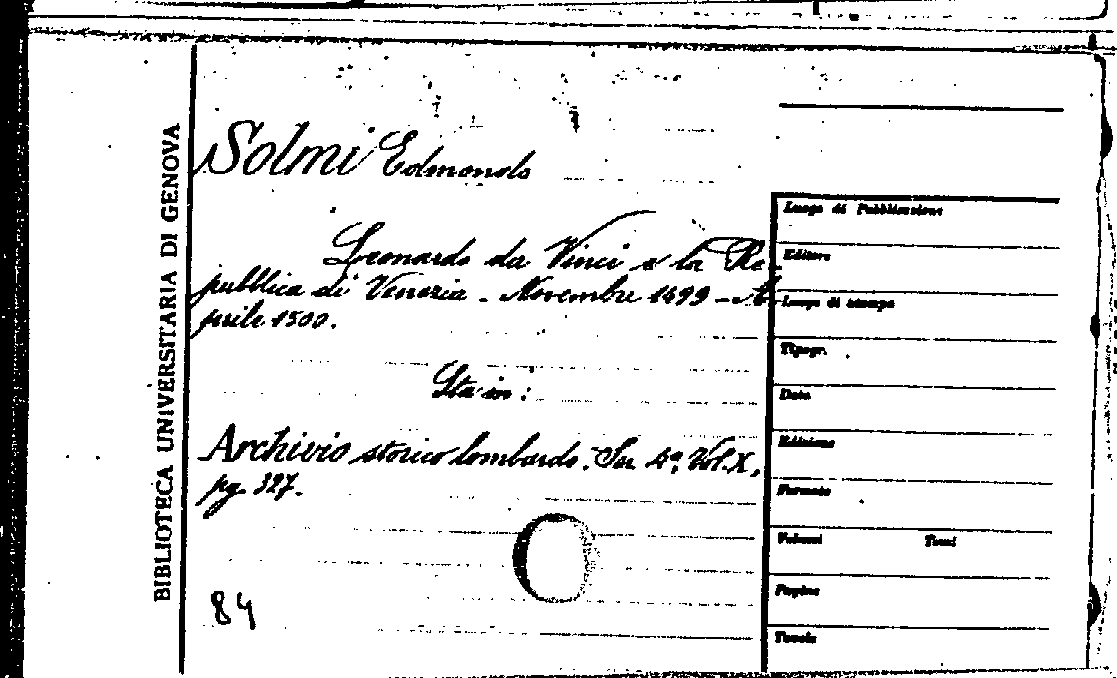 BIBLIOTECA UNIVERSITARIA DI GENOVA
Solmi Edmondo
Leonardo da Vinci e la Re-
pubblica di Venezia - Novembre 1499 - A-
prile 1500.
Sta in:
Archivio storico lombardo. Ser. 4ª, Vol. X,
pg. 327.
84
Luogo di Pubblicazione
Editore
Luogo di stampa
Tipogr.
Data
Edizione
Formato
Volumi Tomi
Pagine
Tavole